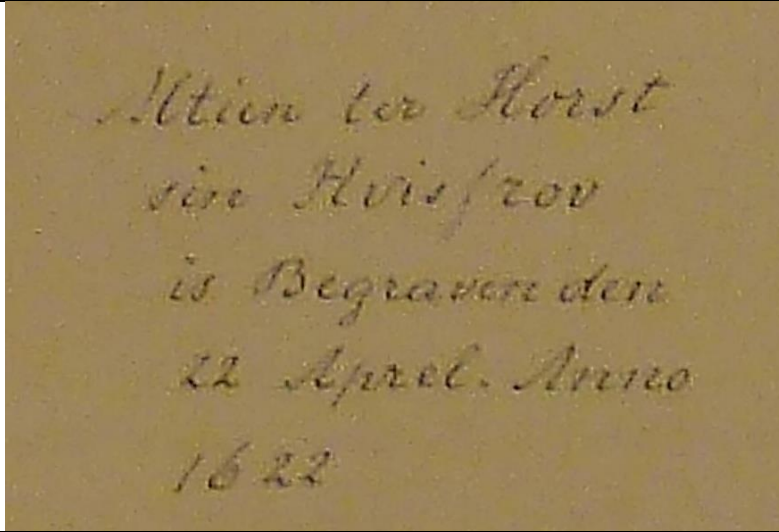 Altien ter Horst
sin Hvisfrov
is Begraven den
22 Aprel. Anno
1622